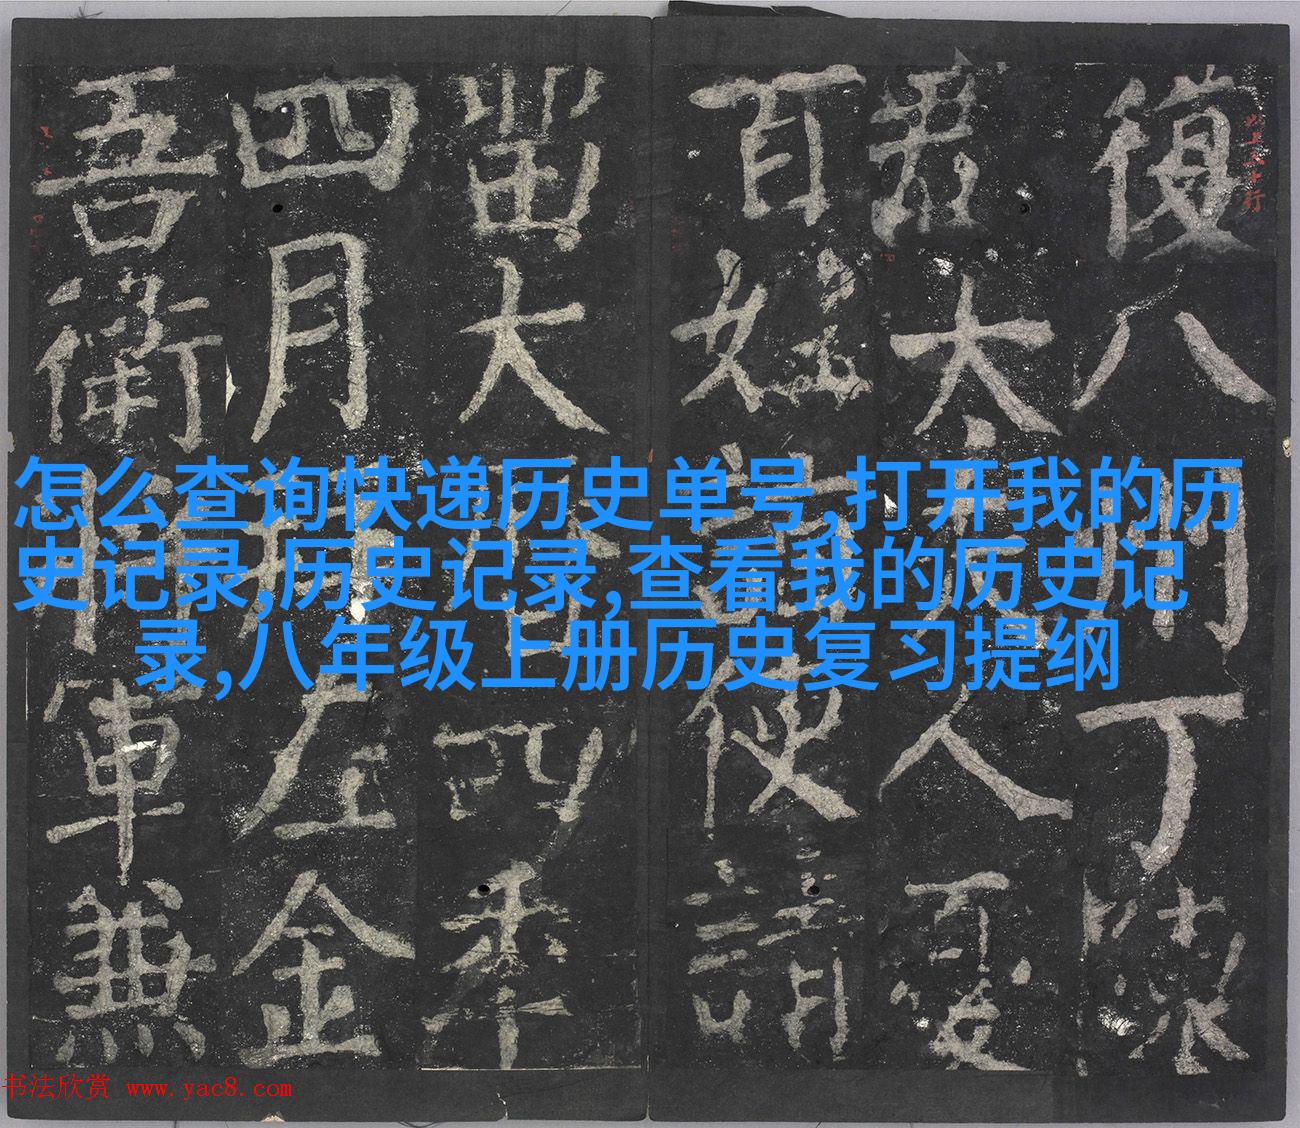 怎么查询快递历史单号,打开我的历
史记录,历史记录,查看我的历史记
录,八年级上册历史复习提纲
復八丁
太夫人
百姓使請
留大四年
四月左金
吾衛將軍兼
书法欣赏 www.yac8.com